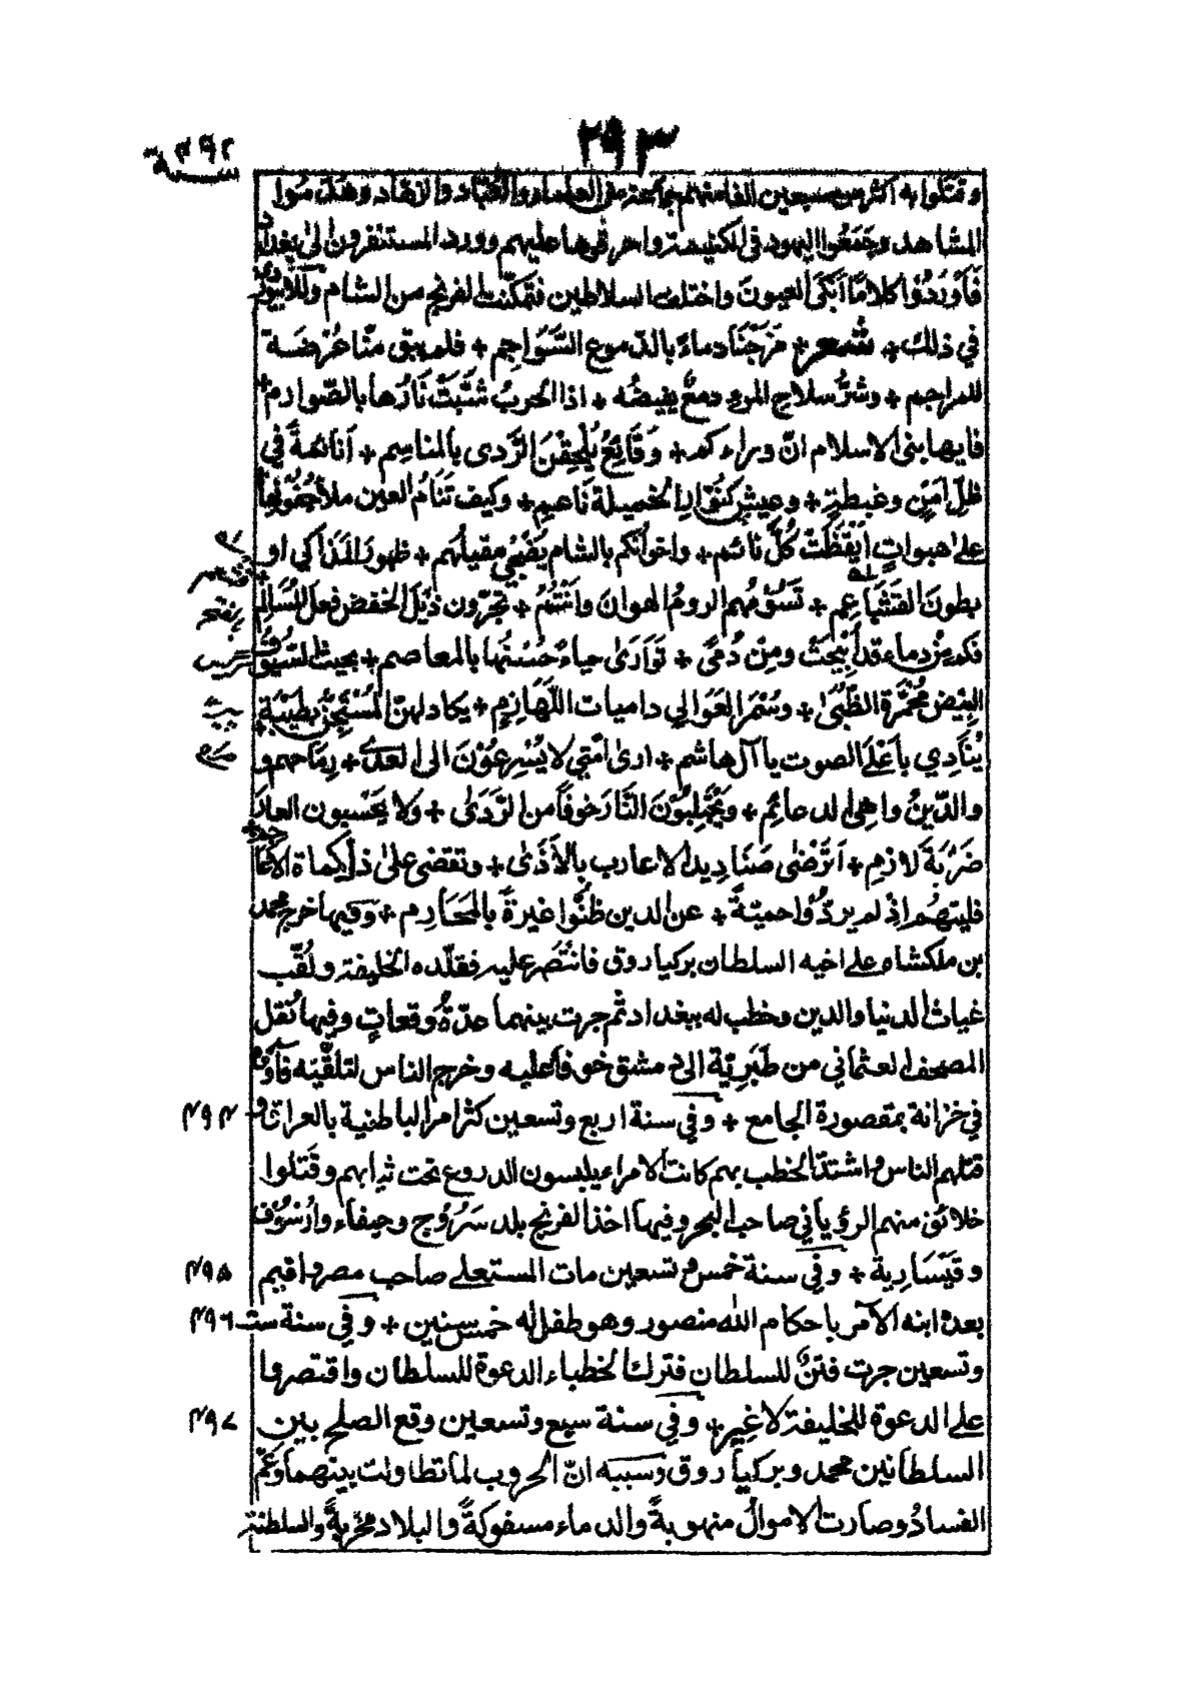 ٢٩٣
سنة ٤٩٢
وقتلوا به اكثر من سبعين الفا منهم جماعة من العلماء والعُبَّاد والزهاد وهَدَّمُوا
المشاهد وجَمَعُوا اليهود في الكنيسة واحرقوها عليهم وورد المستنفرون الى بغداد
فَاَوْرَدُوْا كلامًا اَبْكَى العيونَ واختلف السلاطين فتمكّنت الفرنج من الشام وللابيوردي
في ذلك + شعر + مَزَجْنَا دماءً بالدّموع السَّوَاجِم + فلم يبق منّا عُرْضَة
للمراجم + وشرُّ سلاح المرءِ دمعٌ يفيضُه + اذا الحربُ شُبَّتْ نَارُها بالصّوارم +
فايها بنى الاسلام انّ وراءكم + وَقَائِعُ يُلْحِقْنَ الرَّدى بالمناسِم + اَنائمةً في
ظلّ اَمْنٍ وغبطةٍ + وعيشٍ كنُوّار الخميلة نَاعمٍ + وكيف تَنَامُ العين ملأَ جُفُوْنِها
على هبواتٍ اَيْقَظَتْ كُلَّ نائم + واخوانُكم بالشام يُضْحِي مقيلُهم + ظهورَ المَذَاكي او
بطونَ القَشَاعم + تَسُوْمُهم الرومُ الهوانَ وانْتُمُ + تجرّون ذَيْلَ الخفض فعلَ المُسَالم
فكم من دماء قد اُبِيْحَتْ ومِنْ دُمًى + تَوَارَىٰ حياءً حُسْنُها بالمعاصم + بحيث السُّيوفُ
البِيْضُ مُحْمَرَّة الظُّبَىٰ + وسُمْرَ العَوَالي داميات اللَّهَاذِم + يكاد لهنّ المُسْتَجِنُّ بطَيْبَة +
يُنَادِي باَعْلَى الصوت يا آل هاشم + ارىٰ اُمَّتِي لا يُسْرِعُوْنَ الى العدىٰ + رِمَاحهم و
والدّينُ واهِي الدعائِم + ويَجْتَنِبُوْنَ النَّارَ خوفًا من الرَّدَىٰ + ولا يَحْسبون العارَ
ضَرْبَةَ لازمِ + اَتَرْضٰى صَنَادِيد الاعارب بالاَذَىٰ + وتغضى علىٰ ذلّ كماة الاعاجم +
فليتهُم اِذْ لم يردُّوْا حميّةً + عن الدين ظنُّوا غيرةً بالمَحَارِم + وفيها خرج محمد
بن ملكشاه على اخيه السلطان بركياروق فانْتَصَر عليه فقلّده الخليفة ولُقّب
غياث الدنيا والدين وخطب له ببغداد ثم جرت بينهما عدّةُ وقعاتٍ وفيها نُقل
المصحف العثماني من طَبَرِيّة الى دمشق خوفًا عليه وخرج الناس لتلقّيه فآووه
في خزانة بمقصورة الجامع + وفي سنة اربع وتسعين كثر امر الباطنية بالعراق و ٤٩٤
قتلهم الناس واشتدّ الخطب بهم كانت الامراء يلبسون الدروع تحت ثيابهم وقَتلوا
خلائق منهم الرؤياني صاحب البحر وفيها اخذ الفرنج بلد سَرُوْج وحيفاء وارْسُوْف
وقَيْسَارِية + وفي سنة خمس وتسعين مات المستعلى صاحب مصر واقيم ٤٩٥
بعده ابنه الآمر باحكام الله منصور وهو طفل له خمس سنين + وفي سنة ست ٤٩٦
وتسعين جرت فتنٌ للسلطان فترك الخطباء الدعوة للسلطان واقتصروا
على الدعوة للخليفة لا غير + وفي سنة سبع وتسعين وقع الصلح بين ٤٩٧
السلطانين محمد وبركياروق وسببه انّ الحروب لما تطاولت بينهما وعَمَّ
الفسادُ وصارت الاموالُ منهوبةً والدماء مسفوكةً والبلاد مخربةً والسلطنة